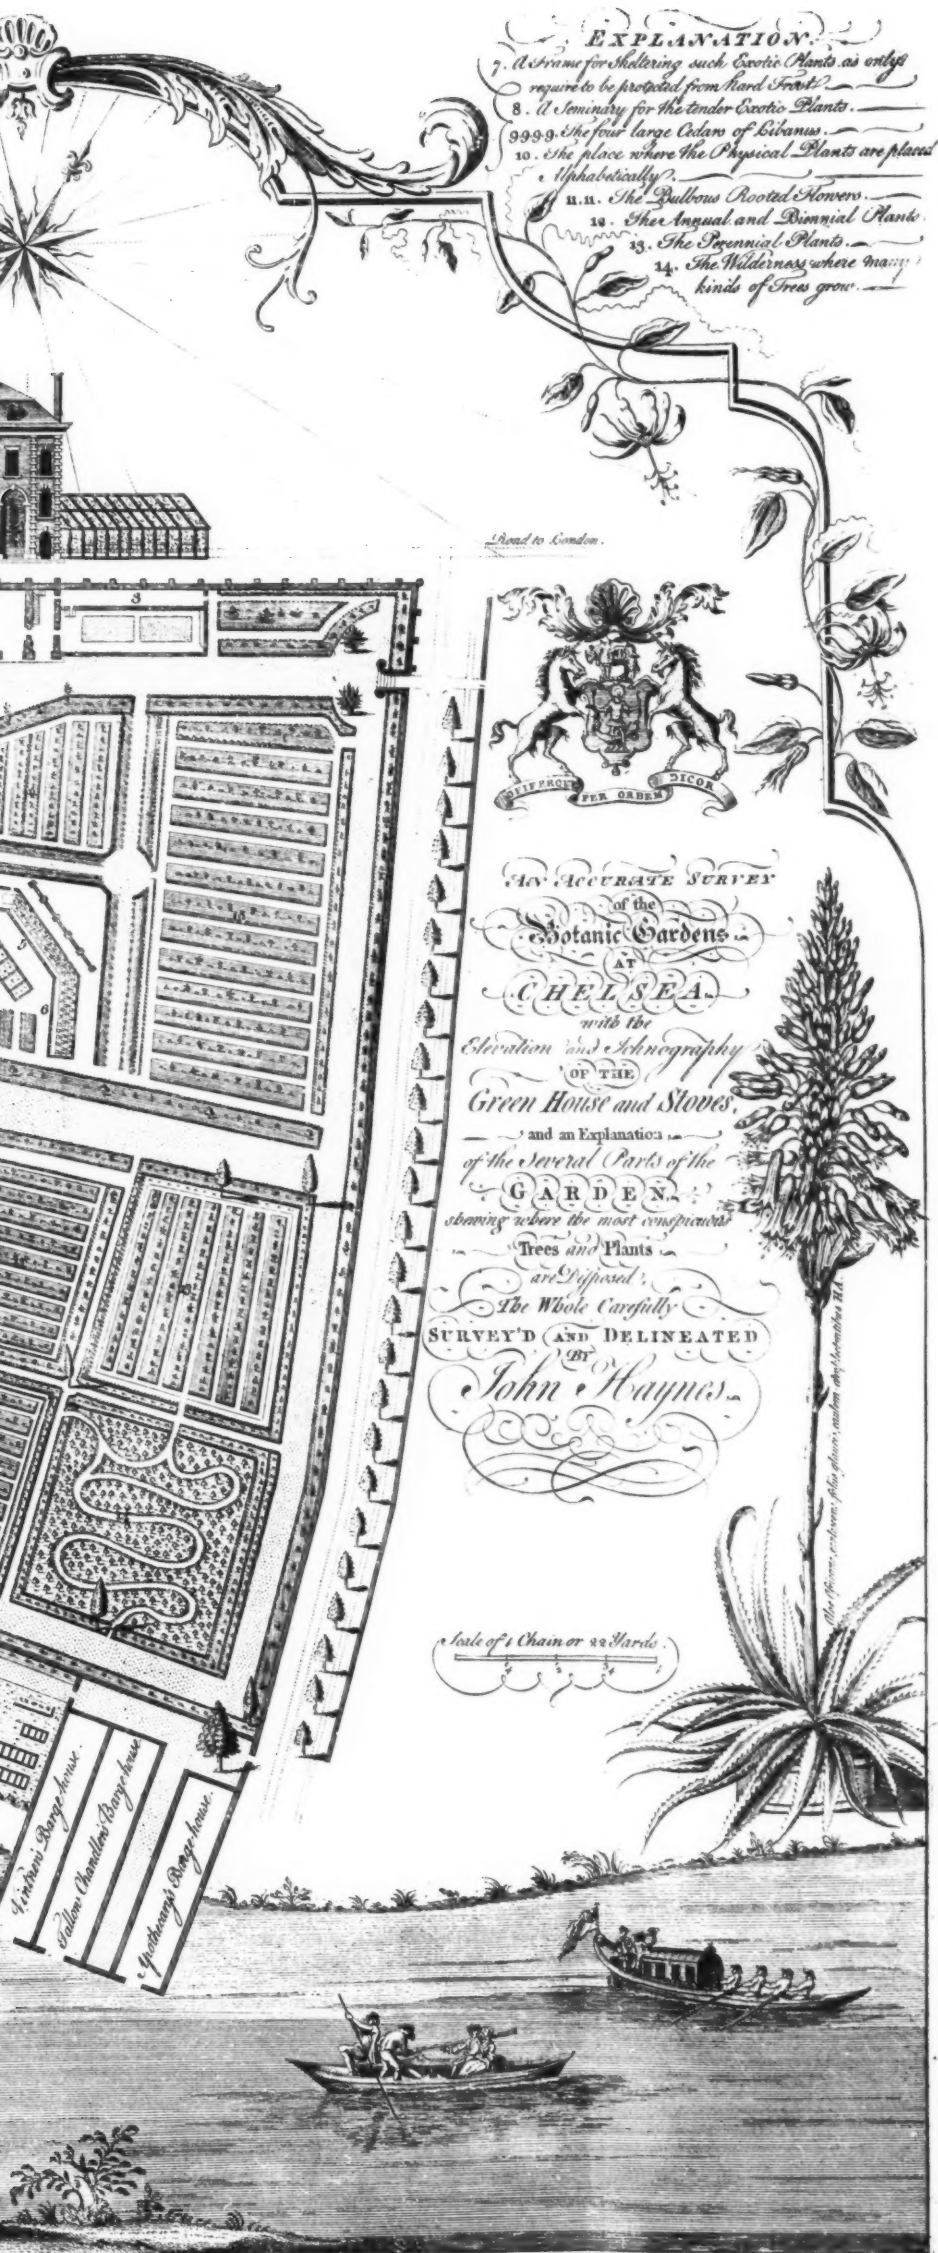 EXPLANATION.
7. A Frame for Sheltering such Exotic Plants as only
require to be protected from hard Frost.
8. A Seminary for the tender Exotic Plants.
9999. The four large Cedars of Libanus.
10. The place where the Physical Plants are placed
Alphabetically.
11.11. The Bulbous Rooted Flowers.
12. The Annual and Biennial Plants.
13. The Perennial Plants.
14. The Wilderness where many
kinds of Trees grow.
Road to London.
3
OPIFERQUE PER ORBEM DICOR
AN ACCURATE SURVEY
of the
Botanic Gardens
AT
CHELSEA
with the
Elevation and Ichnography
OF THE
Green House and Stoves,
and an Explanation
of the Several Parts of the
GARDEN
shewing where the most conspicuous
Trees and Plants
are Disposed.
The Whole Carefully
SURVEY'D AND DELINEATED
By
John Haynes
5
6
13
14
Scale of 1 Chain or 22 Yards.
Vintners Barge house.
Tallow Chandlers Barge house
Apothecarys Barge house.